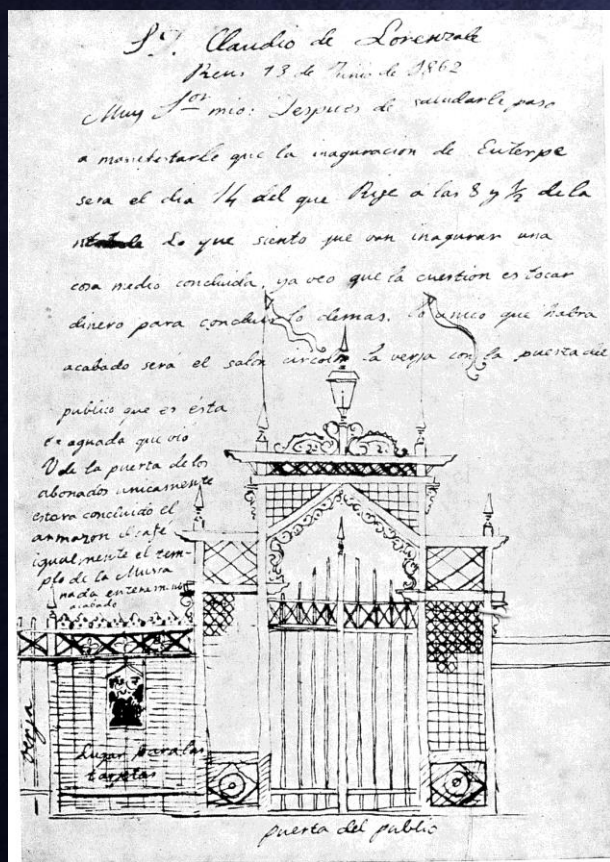 Sr. Claudio de Lorenzale
Reus 13 de Junio de 1862
Muy Sor mio: Despues de saludarle paso
a manifestarle que la inaguracion de Euterpe
sera el dia 14 del que Rige a las 8 y ½ de la
Lo que siento que van inagurar una
cosa medio concluida, ya veo que la cuestion es tocar
dinero para concluir lo demas. Lo unico que habra
acabado será el salon circolar la verja con la puesta del
publico que es ésta
aguada que vió
V de la puerta de los
abonados unicamente
estara concluido el
armazon el café
igualmente el tem-
plo de la Musica
nada enteramente
acabado
verja
Lugar para las
tarjetas
puerta del publico